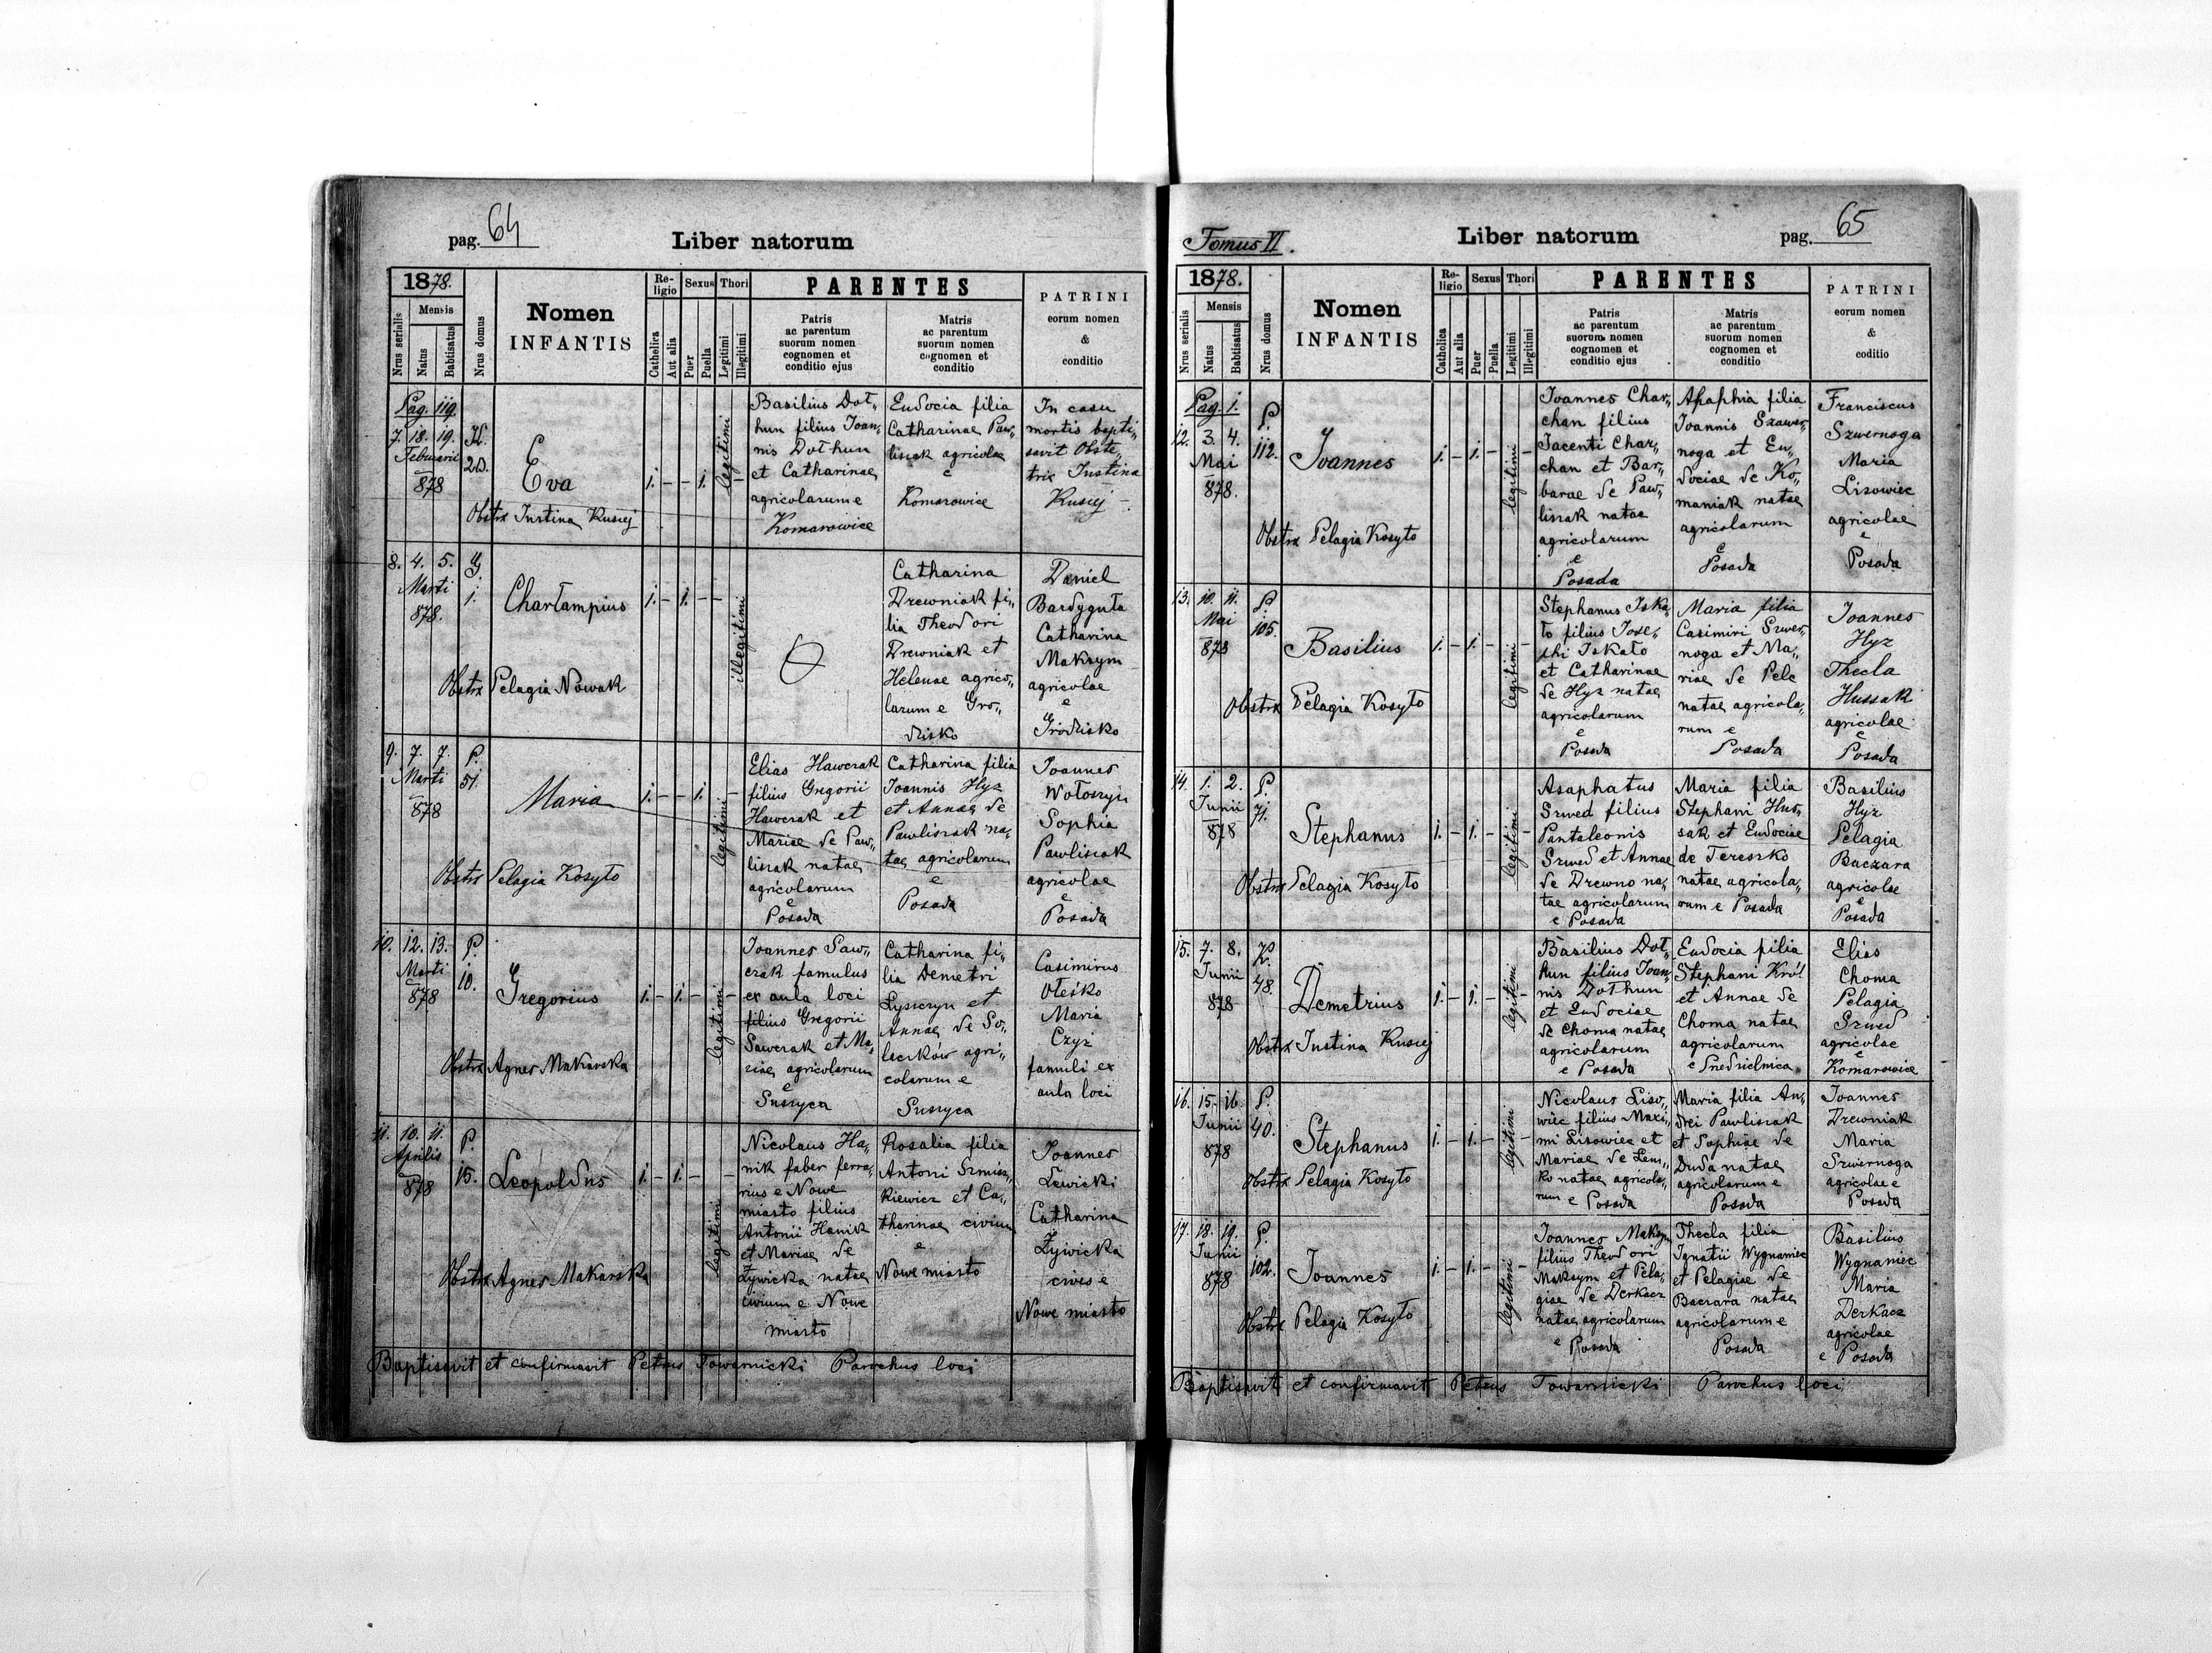 pag. 64
Liber natorum
1878.
Nrus serialis
Mensis
Natus
Babtisatus
Nrus domus
Nomen
INFANTIS
Religio
Catholica
Aut alia
Sexus
Puer
Puella
Thori
Legitimi
Illegitimi
PARENTES
Patris
ac parentum
suorum nomen
cognomen et
conditio ejus
Matris
ac parentum
suorum nomen
cognomen et
conditio
PATRINI
eorum nomen
&
conditio
Pag. 119.
7. 18. 19.
Februarii
878
K.
20.
Eva
Obstrx Justina Kusiej
1. – – 1.
legitimi
Basilius Doł„
hun filius Joan„
nis Dołhun
et Catharinae
agricolarum e
Komarowice
Eudocia filia
Catharinae Paw„
lisiak agricolae
e
Komarowice
In casu
mortis bapti„
savit Obste„
trix Justina
Kusiej –.
8. 4. 5.
Marti
878.
G
1.
Charłampius
Obstrx Pelagia Nowak
1. – 1. –
illegitimi
Catharina
Drewniak fi„
lia Theodori
Drewniak et
Helenae agrico„
larum e Gro„
dzisko
Daniel
Bardyguła
Catharina
Maksym
agricolae
e
Grodzisko
9. 7. 7.
Marti
878
P.
51.
Maria
Obstrx Pelagia Kosyło
1. – – 1. –
legitimi
Elias Hawczak
filius Gregorii
Hawczak et
Mariae de Paw„
lisiak natae
agricolarum
e
Posada
Catharina filia
Joannis Hyz
et Annae de
Pawlisiak na„
tae agricolarum
e
Posada
Joannes
Wołoszyn
Sophia
Pawlisiak
agricolae
e
Posada
10. 12. 13.
Marti
878
P.
10.
Gregorius
Obstrx Agnes Makarska
1. – 1. – –
legitimi
Joannes Saw„
czak famulus
ex aula loci
filius Gregorii
Sawczak et Ma„
riae agricolarum
e
Suszyca
Catharina fi„
lia Demetri
Łyszczyn et
Annae de So„
leczków agri„
colarum e
Suszyca
Casimirus
Oleśko
Maria
Czyż
famuli ex
aula loci
11. 10. 11.
Aprilis
878
P.
15.
Leopoldus
Obstrx Agnes Makarska
1. – 1. – –
legitimi
Nicolaus Ha„
nik faber ferra„
rius e Nowe
miasto filius
Antonii Hanik
et Mariae de
Żywicka natae
civium e Nowe
miasto
Rosalia filia
Antoni Szmisz„
kiewicz et Ca„
tharinae civium
e
Nowe miasto
Joannes
Lewicki
Catharina
Żywicka
cives e
Nowe miasto
Baptisavit et confirmavit Petrus Towarnicki Parochus loci
Tomus VI.
Liber natorum
pag. 65
1878.
Nrus serialis
Mensis
Natus
Babtisatus
Nrus domus
Nomen
INFANTIS
Religio
Catholica
Aut alia
Sexus
Puer
Puella
Thori
Legitimi
Illegitimi
PARENTES
Patris
ac parentum
suorum nomen
cognomen et
conditio ejus
Matris
ac parentum
suorum nomen
cognomen et
conditio
PATRINI
eorum nomen
&
coditio
Pag. 1.
12. 3. 4.
Mai
878.
P.
112.
Joannes
Obstrx Pelagia Kosyło
1. – 1. – –
legitimi
Joannes Char„
chan filius
Jacenti Char„
chan et Bar„
barae de Paw„
lisiak natae
agricolarum
e
Posada
filia
Joannis Szwer„
noga et Eu„
dociae de Ko„
maniak natae
agricolarum
e
Posada
Franciscus
Szwernoga
Maria
Lisowiec
agricolae
e
Posada
13. 10. 11.
Mai
878
P.
105.
Basilius
Obstrx Pelagia Kosyło
1. – 1. – –
legitimi
Stephanus Iska„
ło filius Jose„
phi Iskało
et Catharinae
de Hyz natae
agricolarum
e
Posada
Maria filia
Casimiri Szwer„
noga et Ma„
riae de Pelc
natae agricola„
rum e
Posada
Joannes
Hyz
Thecla
Hussak
agricolae
e
Posada
14. 1. 2.
Junii
878
P.
71.
Stephanus
Obstrx Pelagia Kosyło
1. – 1. – –
legitimi
Asaphatus
Szwed filius
Pantaleonis
Szwed et Annae
de Drewno na„
tae agricolarum
e Posada
Maria filia
Stephani Hus„
sak et Eudociae
de Tereszko
natae agricola„
rum e Posada
Basilius
Hyz
Pelagia
Baczara
agricolae
e
Posada
15. 7. 8.
Junii
878
K.
48.
Demetrius
Obstrx Justina Kusiej
1. – 1. – –
legitimi
Basilius Doł„
hun filius Joan„
nis Dołhun
et Eudociae
de Choma natae
agricolarum
e Posada
Eudocia filia
Stephani Król
et Annae de
Choma natae
agricolarum
e Predzielnica
Elias
Choma
Pelagia
Szwed
agricolae
e
Komarowice
16. 15. 16.
Junii
878
P.
40.
Stephanus
Obstrx Pelagia Kosyło
1. – 1. – –
legitimi
Nicolaus Liso„
wiec filius Maxi„
mi Lisowiec et
Mariae de Lem„
ko natae agricola„
rum e Posada
Maria filia An„
drei Pawlisiak
et Sophiae de
Duda natae
agricolarum e
Posada
Joannes
Drewniak
Maria
Szwernoga
agricolae e
Posada
17. 18. 19.
Junii
878
P.
102.
Joannes
Obstrx Pelagia Kosyło
1. – 1. – –
legitimi
Joannes Maksym
filius Theodori
Maksym et Pela„
giae de Derkacz
natae agricolarum
e Posada
Thecla filia
Ignatii Wygnaniec
et Pelagiae de
Baczara natae
agricolarum e
Posada
Basilius
Wygnaniec
Maria
Derkacz
agricolae
e Posada
Baptisavit et confirmavit Petrus Towarnicki Parochus loci